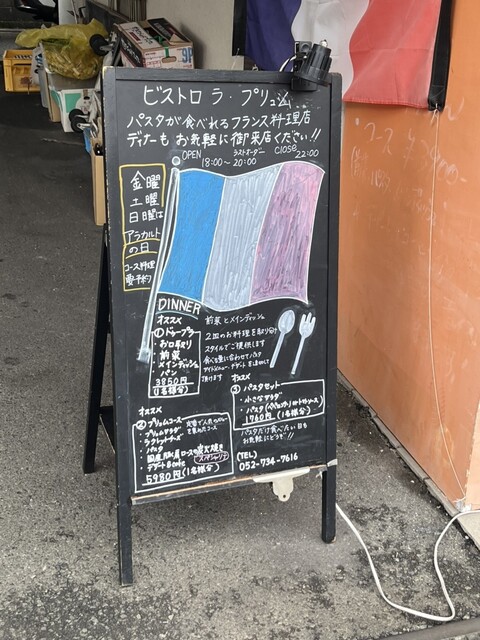 ビストロ ラ・プリュム
パスタが食べれるフランス料理店
ディナーも お気軽に御来店ください!!
OPEN ラストオーダー CLOSE
18:00〜20:00 22:00
金曜
土曜
日曜は
アラカルト
の日
コース料理
要予約
DINNER
オススメ
①ドゥープラ
・お口取り
・前菜
・メインディッシュ
・パン
3850円
(1名様分)
前菜とメインディッシュ
2皿のお料理を取り分け
スタイルでご提供します
頂けます
オススメ
③パスタセット
・小さなサラダ
1760円(1名様)
パスタだけ食べたい日も
お気軽にどうぞ!!
オススメ
②プリュムコース
・プリュムサラダ
・パスタ
炭火焼き
・デザート&cafe
5980円(1名様分)
(TEL)
052-734-7616